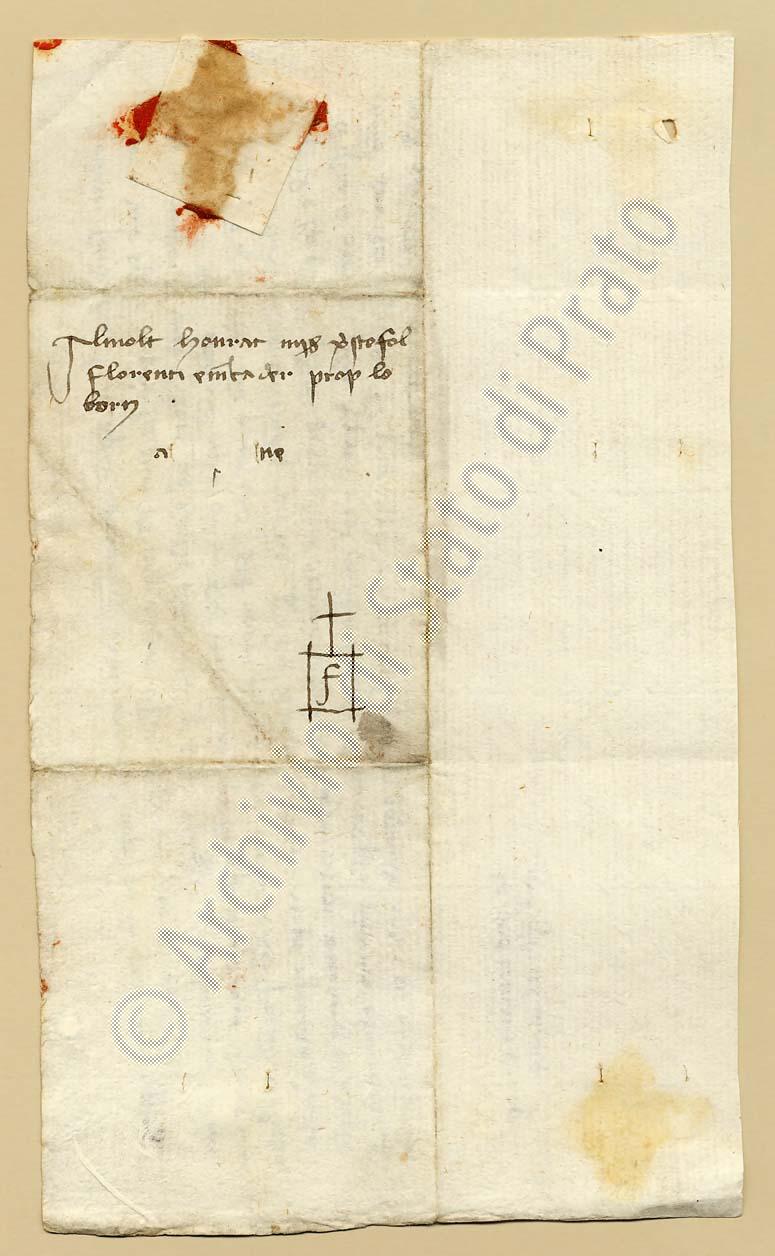 Al molt honrat mis xpstofol
florenti e mcader prop lo
born
a ne
f
© Archivio di Stato di Prato